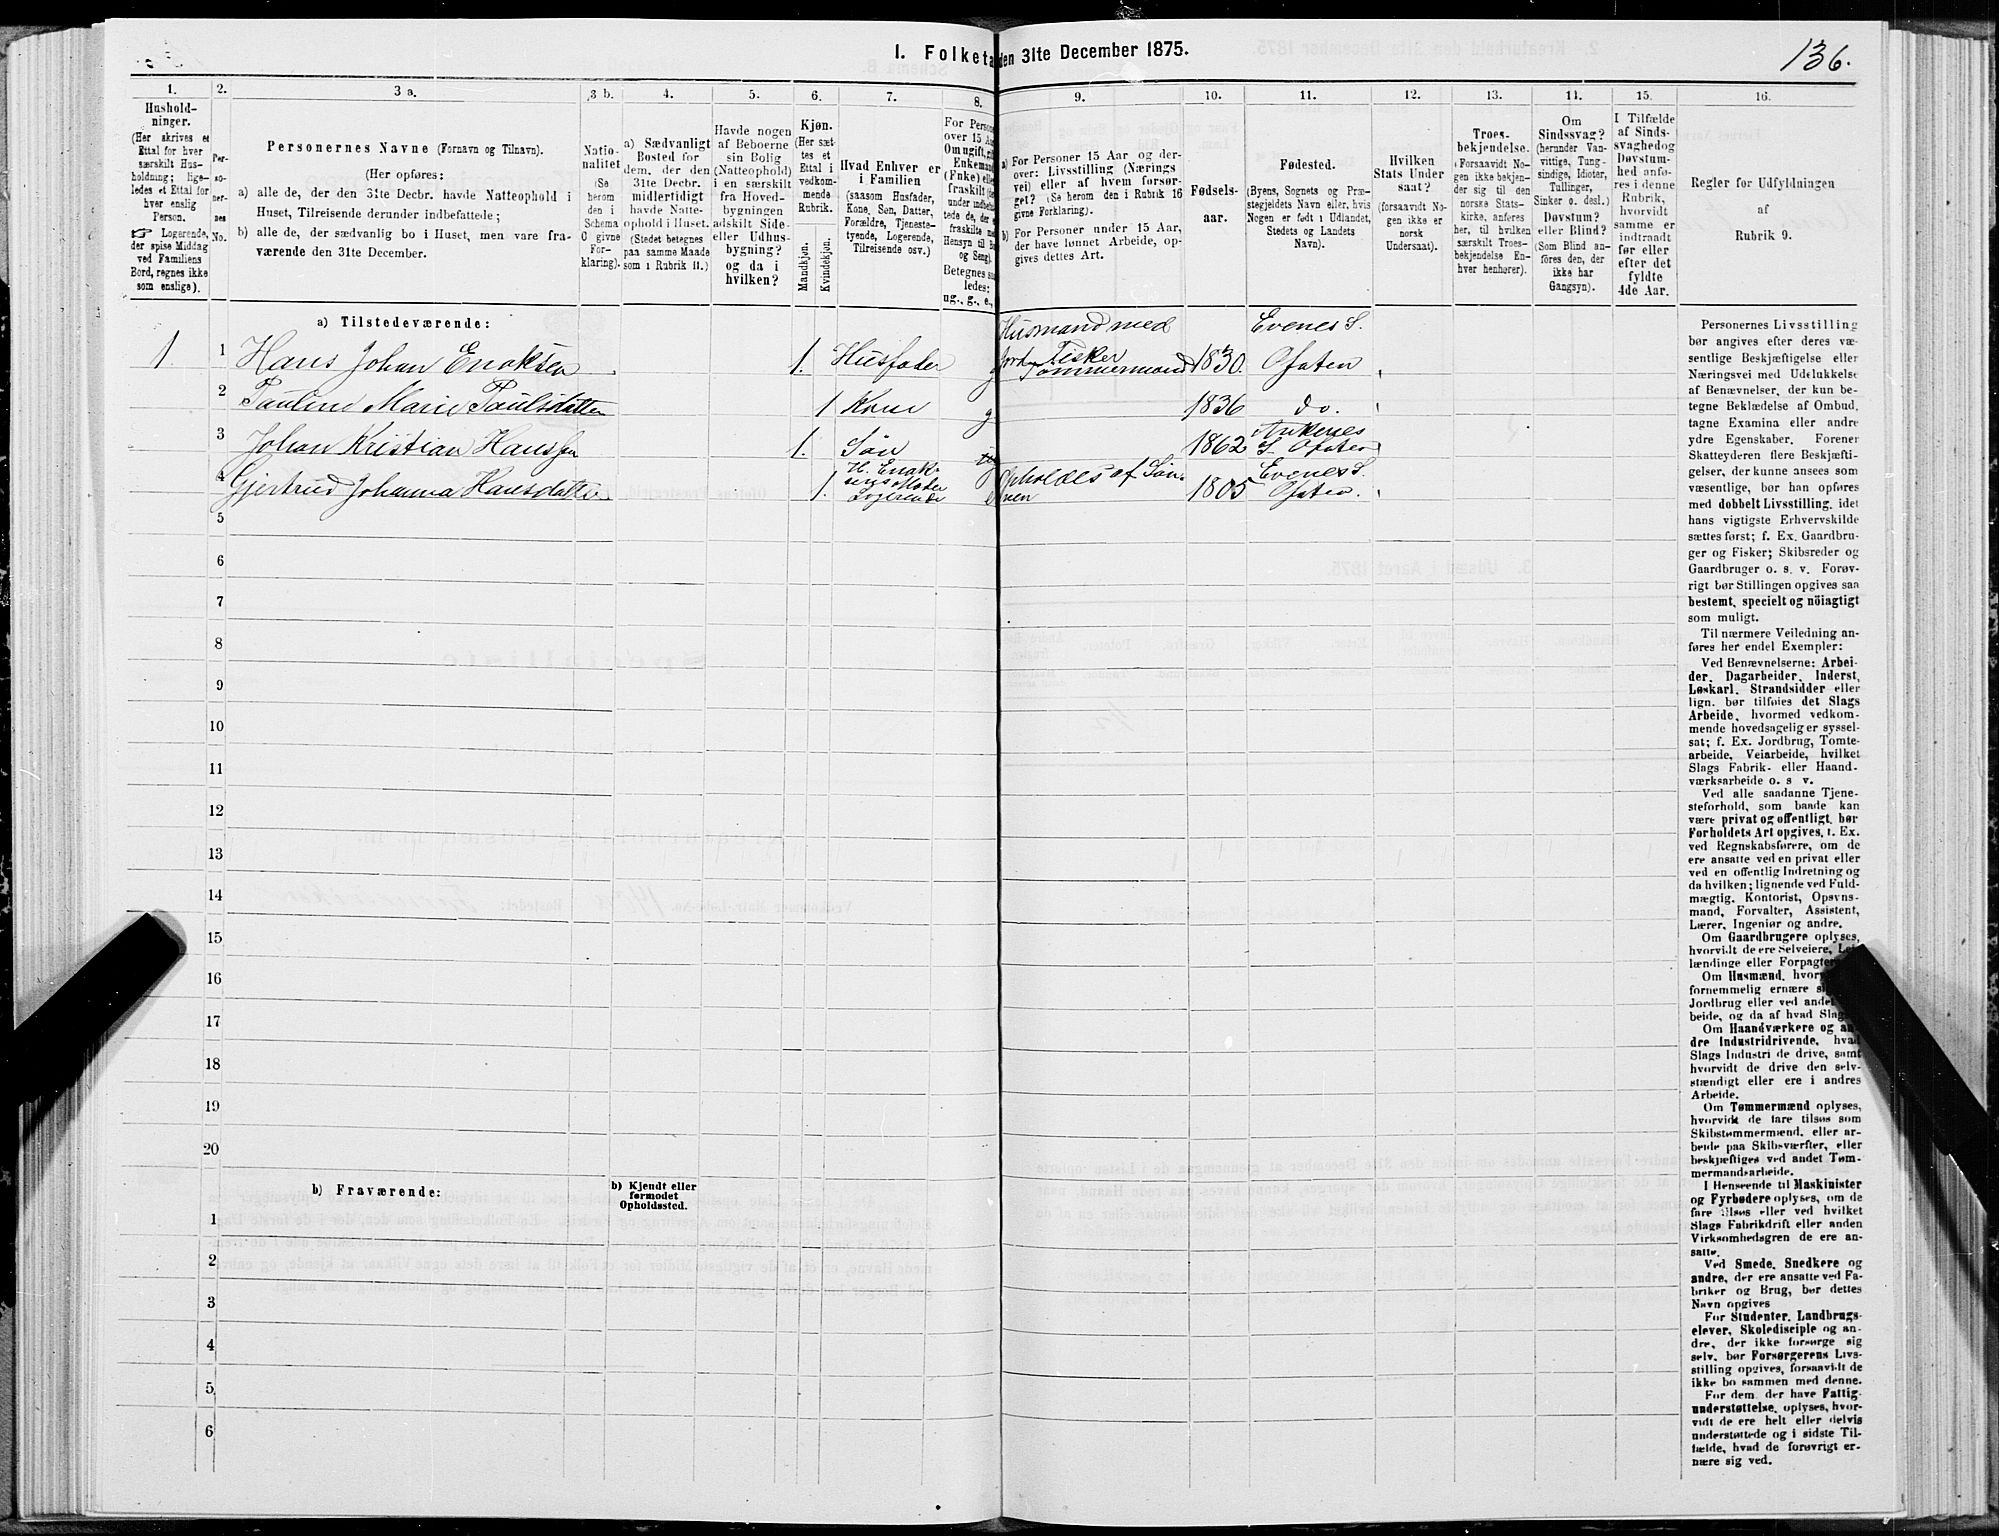 1. Folketa den 31te December 1875.
136.
1.
Hushold-
ninger.
(Her skrives et
Ettal for hver
særskilt Hus-
holdning; lige-
ledes et Ettal for
hver enslig
Person.
Logerende,
der spise Middag
ved Familiens
Bord, regnes ikke
som enslige).
2.
Per-
so-
ner-
nes
No.
3 a.
Personernes Navne (Fornavn og Tilnavn).
(Her opføres:
a) alle de, der den 31te Decbr. havde Natteophold i
Huset, Tilreisende derunder indbefattede;
b) alle de, der sædvanlig bo i Huset, men vare fra-
værende den 31te December.
3 b.
Natio-
nalitet
(Se
herom
den i
Schema
O givne
For-
klaring).
4.
a) Sædvanligt
Bosted for
dem, der den
31te Decbr.
midlertidigt
havde Natte-
ophold i Huset.
(Stedet betegnes
paa samme Maade
som i Rubrik 11.)
5.
Havde nogen
af Beboerne
sin Bolig
(Natteophold)
i en særskilt
fra Hoved-
bygningen
adskilt Side-
eller Udhus-
bygning?
og da i
hvilken?
6.
Kjøn.
(Her sæt-
tes et
Ettal i
vedkom-
mende
Rubrik.
Mandkjøn.
Kvindekjøn.
7.
Hvad Enhver er
i Familien
(saasom Husfader,
Kone, Søn, Datter,
Forældre, Tjeneste-
tyende, Logerende,
Tilreisende osv.)
8.
For Person
over 15 Aa
Om ugift, gi
Enkeman
(Enke) elle
fraskilt
under indbe
tede de, der
fraskilte me
Hensyn til Bo
og Seng).
Betegnes saa
ledes:
ug., g., e.,
9.
a) For Personer 15 Aar og der-
over: Livsstilling (Nærings
vei) eller af hvem forsør-
get? (Se herom den i Rubrik 16
givne Forklaring).
b) For Personer under 15 Aar,
der have lønnet Arbeide, op-
gives dettes Art.
10.
Fødsels-
aar.
11.
Fødested.
(Byens, Sognets og Præ-
stegjeldets Navn eller, hvis
Nogen er født i Udlandet,
Stedets og Landets
Navn).
12.
Hvilken
Stats Under
saat?
(forsaavidt No-
gen ikke er
norsk
Undersaat).
13.
Troes-
bekjendelse.
(Forsaavidt No-
gen ikke bekjen-
der sig til den
norske Stats-
kirke, anføres
her, til hvilken
særskilt Troes-
bekjendelse En-
hver henhører).
14.
Om
Sindssvag?
(herunder Van-
vittige, Tung-
sindige, Idioter,
Tullinger,
Sinker o. desl.)
Døvstum?
eller Blind?
(Som Blind an-
føres den, der
ikke har
Gangsyn).
15.
I Tilfælde
af Sinds-
svaghed og
Døvstum-
hed anfø-
res i denne
Rubrik,
hvorvidt
samme er
indtraadt
før eller
efter det
fyldte
4de Aar.
16.
Regler for Udfyldningen
af
Rubrik 9.
a) Tilstedeværende:
1 1 Hans Johan Enoksen 1. Husfader g Husmand med Jord, Fisker Tømmermand 1830. Evenes S. Ofoten
2 Pauline Marie Paulsdatter 1 Kone g 1836 do.
3 Johan Kristian Hanssen 1. Søn 1862 Ankenes S. Ofoten
4 Gjertrud Johanna Hansdatter 1. H. Enok-sens Moder Logerende e Opholdes af Søn-nen 1805 Evenes S. Ofoten.
5
6
7
8
9
10
11
12
13
14
15
16
17
18
19
20
b) Fraværende:
b) Kjendt eller
formodet
Opholdssted.
1
2
3
4
5
6
Personernes Livsstilling
bør angives efter deres væ-
sentlige Beskjæftigelse eller
Næringsvei med Udelukkelse
af Benævnelser, der kun be-
tegne Beklædelse af Ombud,
tagne Examina eller andre
ydre Egenskaber. Forener
Skatteyderen flere Beskjæfti-
gelser, der kunne ansees som
væsentlige, bør han opføres
med dobbelt Livsstilling, idet
hans vigtigste Erhvervskilde
sættes først; f. Ex. Gaardbru-
ger og Fisker; Skibsreder og
Gaardbruger o. s. v. Forøv-
rigt bør Stillingen opgives saa
bestemt, specielt og nöiagtigt
som muligt.
Til nærmere Veiledning an-
føres her endel Exempler:
Ved Benævnelserne: Arbei-
der, Dagarbeider, Inderst,
Løskarl, Strandsidder eller
lign. bør tilføies det Slags
Arbeide, hvormed vedkom-
mende hovedsagelig er syssel-
sat; f. Ex. Jordbrug, Tomte-
arbeide, Veiarbeide, hvilket
Slags Fabrik- eller Haand-
værksarbeide o. s v.
Ved alle saadanne Tjene-
steforhold, som baade kan
være privat og offentligt, bør
Forholdets Art opgives, t. Ex.
ved Regnskabsførere, om de
ere ansatte ved en privat eller
ved en offentlig Indretning og
da hvilken; lignende ved Fuld-
mægtig, Kontorist, Opsyns-
mand, Forvalter, Assistent,
Lærer, Ingeniør og andre.
Om Gaardbrugere oplyses,
hvorvidt de ere Selveiere, Lei-
lændinge eller Forpagte
Om Husmænd, hvor
fornemmelig ernære si
Jordbrug eller ved andet
beide, og da af hvad Slag
Om Haandværkere og an-
dre Industridrivende, hvad
Slags Industri de drive, samt
hvorvidt de drive den selv-
stændigt eller ere i andres
Arbeide.
Om Tømmermænd oplyses,
hvorvidt de fare tilsøs som
Skibstømmermænd, eller ar-
beide paa Skibsværfter, eller
beskjæftiges ved andet Tøm-
mermandsarbeide.
I Henseende til Maskinister
og Fyrbødere oplyses, om de
fare tilsøs eller ved hvilket
Slags Fabrikdrift eller anden
Virksomhedsgren de ere an-
satte.
Ved Smede, Snedkere og
andre, der ere ansatte ved Fa-
briker og Brug, bør dettes
Navn opgives
For Studenter, Landbrugs-
elever, Skoledisciple og an-
dre, der ikke forsørge sig
selv, bør Forsørgerens Livs-
stilling opgives, forsaavidt de
ikke bo sammen med denne.
For dem, der have Fattig-
understøttelse, oplyses, hvor-
vidt de ere helt eller delvis
understøttede og i sidste Til-
fælde, hvad de forøvrigt er-
nære sig ved.